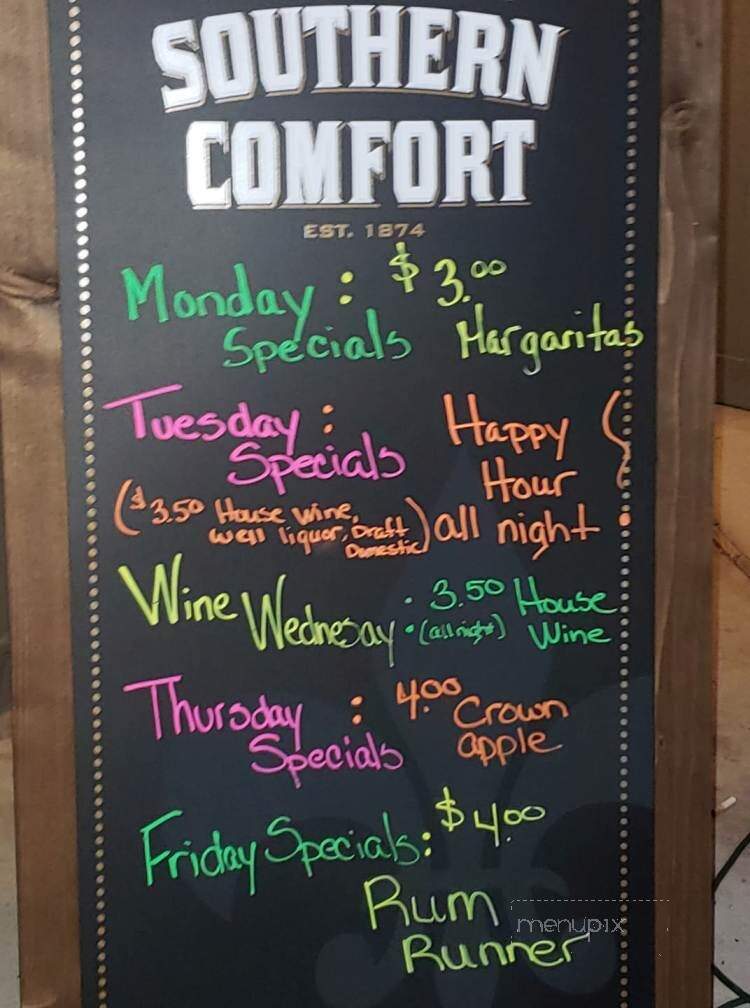 SOUTHERN
COMFORT
EST. 1874
Monday : $3.00
Specials Margaritas
Tuesday : Happy
Specials Hour
($3.50 House wine, all night
well liquor, Draft
Domestic)
Wine Wednesay . 3.50 House
(all night) Wine
Thursday : 4.00 Crown
Specials apple
Friday Specials: $4.00
Rum
Runner
menupix